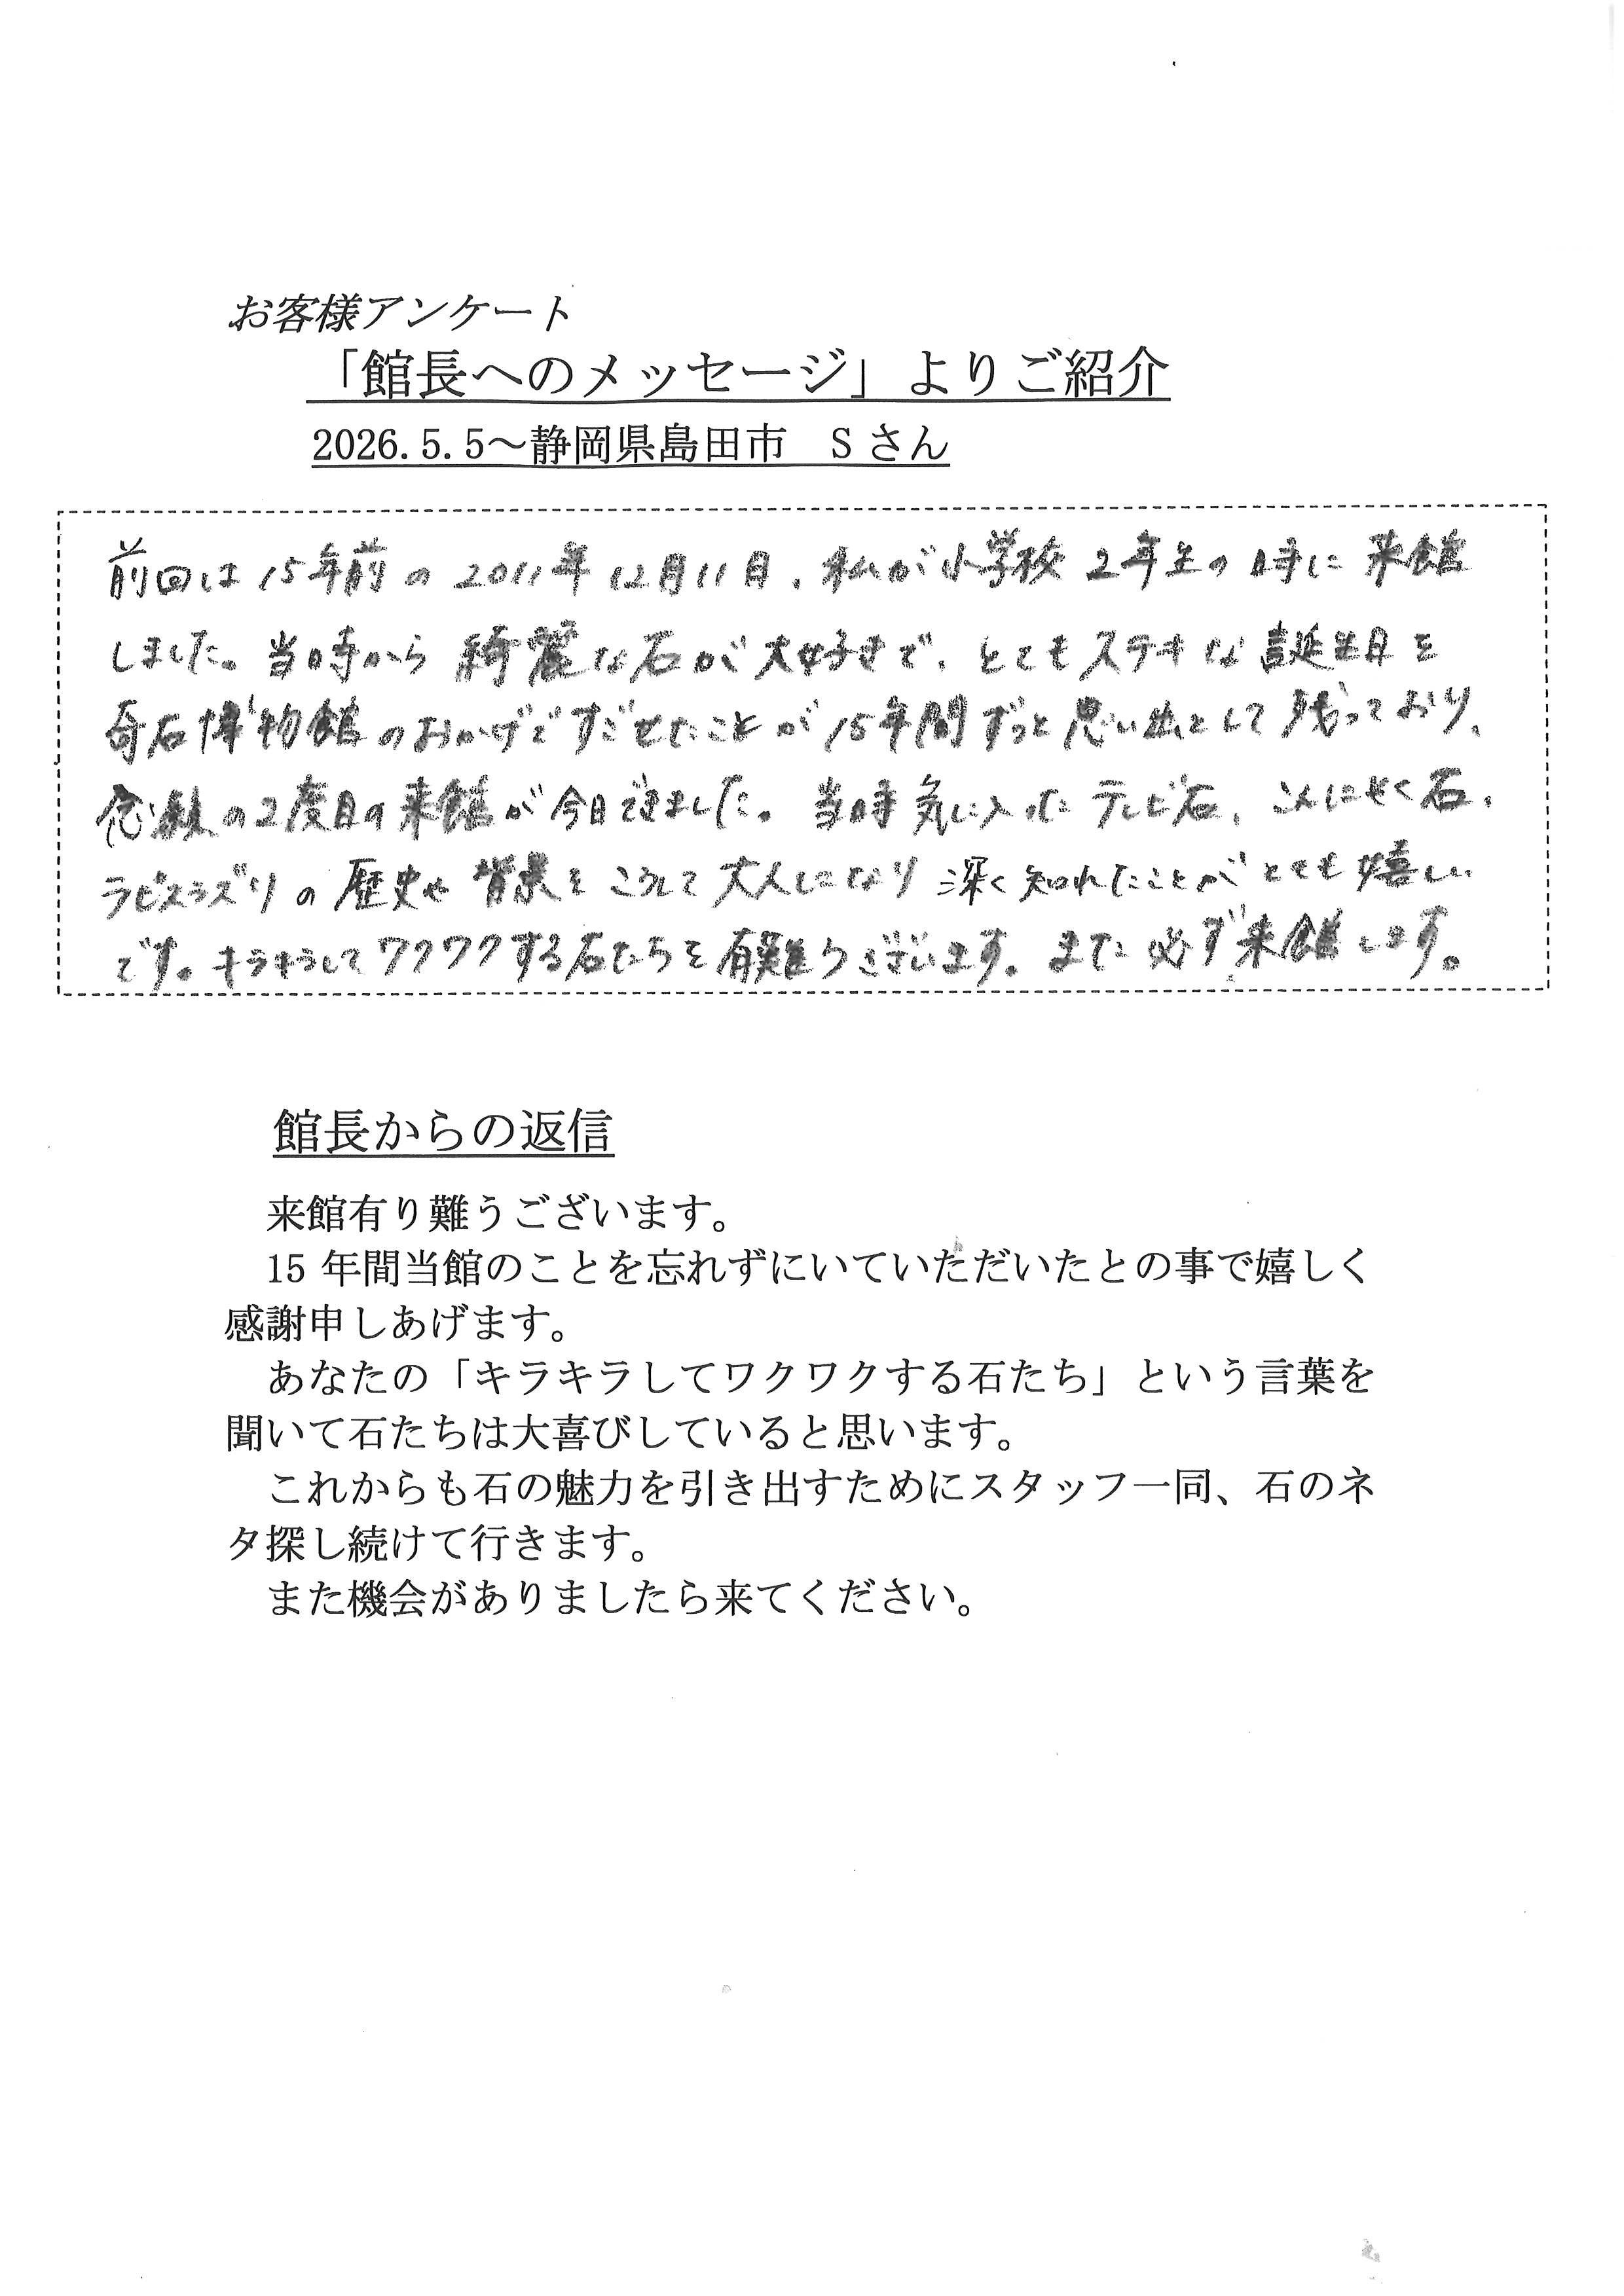 お客様アンケート
「館長へのメッセージ」よりご紹介
2026.5.5～静岡県島田市　Sさん
前回は15年前の2011年12月11日、私が小学校2年生の時に来館
しました。当時から綺麗な石が大好きで、とてもステキな誕生日を
奇石博物館のおかげですごせたことが15年間ずっと思い出として残っており、
念願の2度目の来館が今日できました。当時気に入ったテレビ石、こんにゃく石、
ラピスラズリの歴史や背景をこうして大人になり深く知れたことがとても嬉しい
です。キラキラしてワクワクする石たちを有難うございます。また必ず来館します。
館長からの返信
来館有り難うございます。
15年間当館のことを忘れずにいていただいたとの事で嬉しく
感謝申しあげます。
あなたの「キラキラしてワクワクする石たち」という言葉を
聞いて石たちは大喜びしていると思います。
これからも石の魅力を引き出すためにスタッフ一同、石のネ
タ探し続けて行きます。
また機会がありましたら来てください。